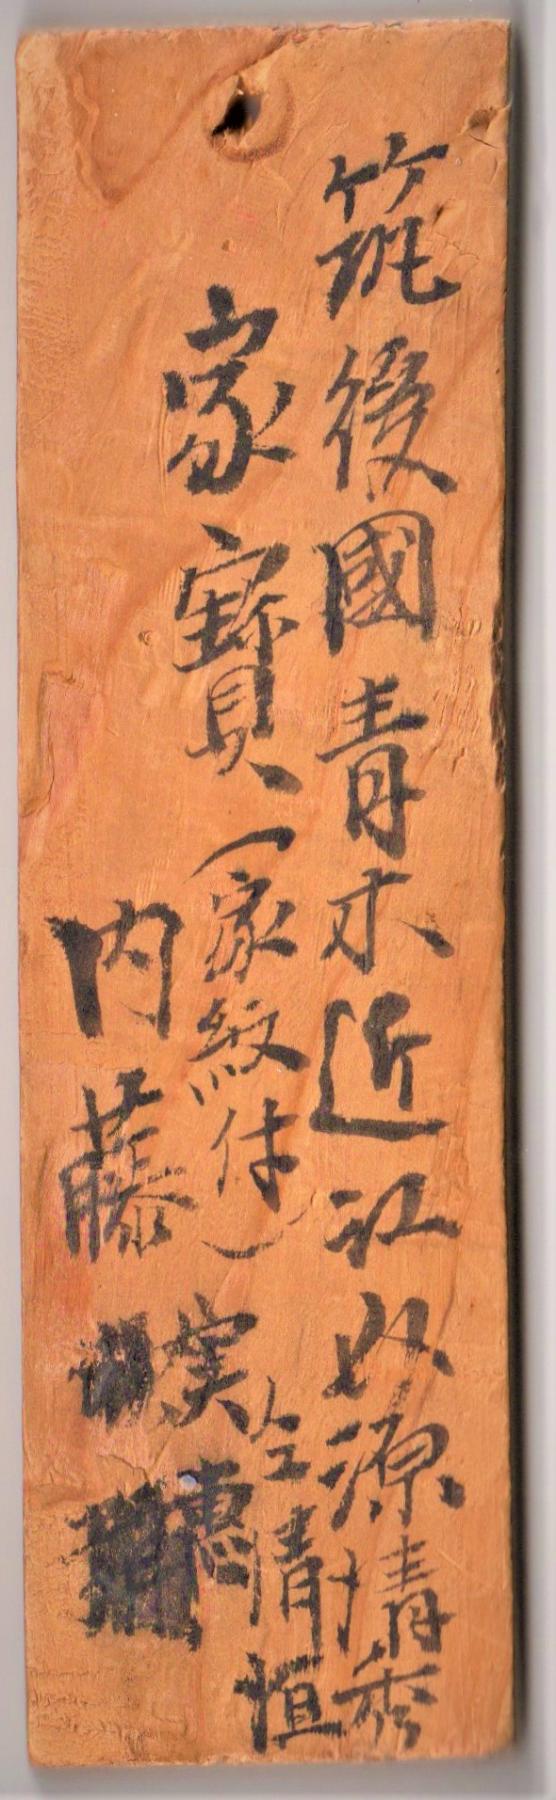 筑後國青木近江以源清秀
仝清恒
家寶(家紋付)
実惠
内藤